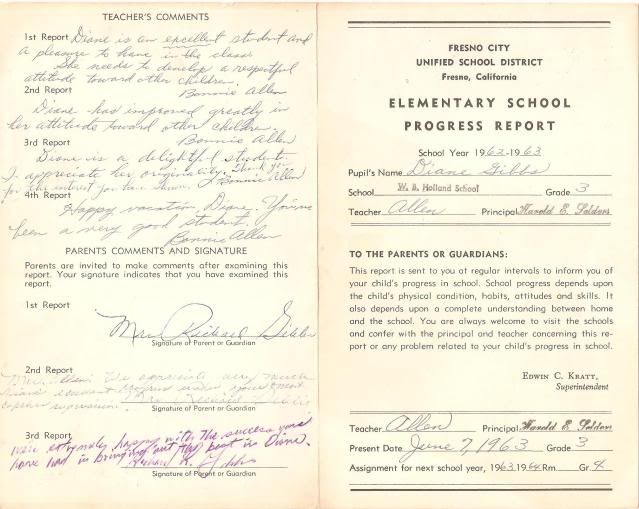 TEACHER'S COMMENTS
1st Report Diane is an excellent student and
a pleasure to have in the class.
She needs to develop a respectful
attitude toward other children.
2nd Report Bonnie Allen
Diane has improved greatly in
her attitude toward other children.
3rd Report Bonnie Allen
Diane is a delightful student.
I appreciate her originality. Thank you
for the interest you have shown. Bonnie Allen
4th Report
Happy vacation Diane. You've
been a very good student.
Bonnie Allen
PARENTS COMMENTS AND SIGNATURE
Parents are invited to make comments after examining this
report. Your signature indicates that you have examined this
report.
1st Report
Mrs. Richard Gibbs
Signature of Parent or Guardian
2nd Report
Mrs. Allen: We appreciate very much
Diane's progress under your most
supervision. Mrs. Richard Gibbs
Signature of Parent or Guardian
3rd Report
We're extremely happy with the success you
have had in bringing out the best in Diane.
Richard R. Gibbs
Signature of Parent or Guardian
FRESNO CITY
UNIFIED SCHOOL DISTRICT
Fresno, California
ELEMENTARY SCHOOL
PROGRESS REPORT
School Year 1962-1963
Pupil's Name Diane Gibbs
School W. B. Holland School Grade 3
Teacher Allen Principal Harold E. Solders
TO THE PARENTS OR GUARDIANS:
This report is sent to you at regular intervals to inform you of
your child's progress in school. School progress depends upon
the child's physical condition, habits, attitudes and skills. It
also depends upon a complete understanding between home
and the school. You are always welcome to visit the schools
and confer with the principal and teacher concerning this re-
port or any problem related to your child's progress in school.
EDWIN C. KRATT,
Superintendent
Teacher Allen Principal Harold E. Solders
Present Date June 7, 1963 Grade 3
Assignment for next school year, 1963-1964 Rm. Gr. 4